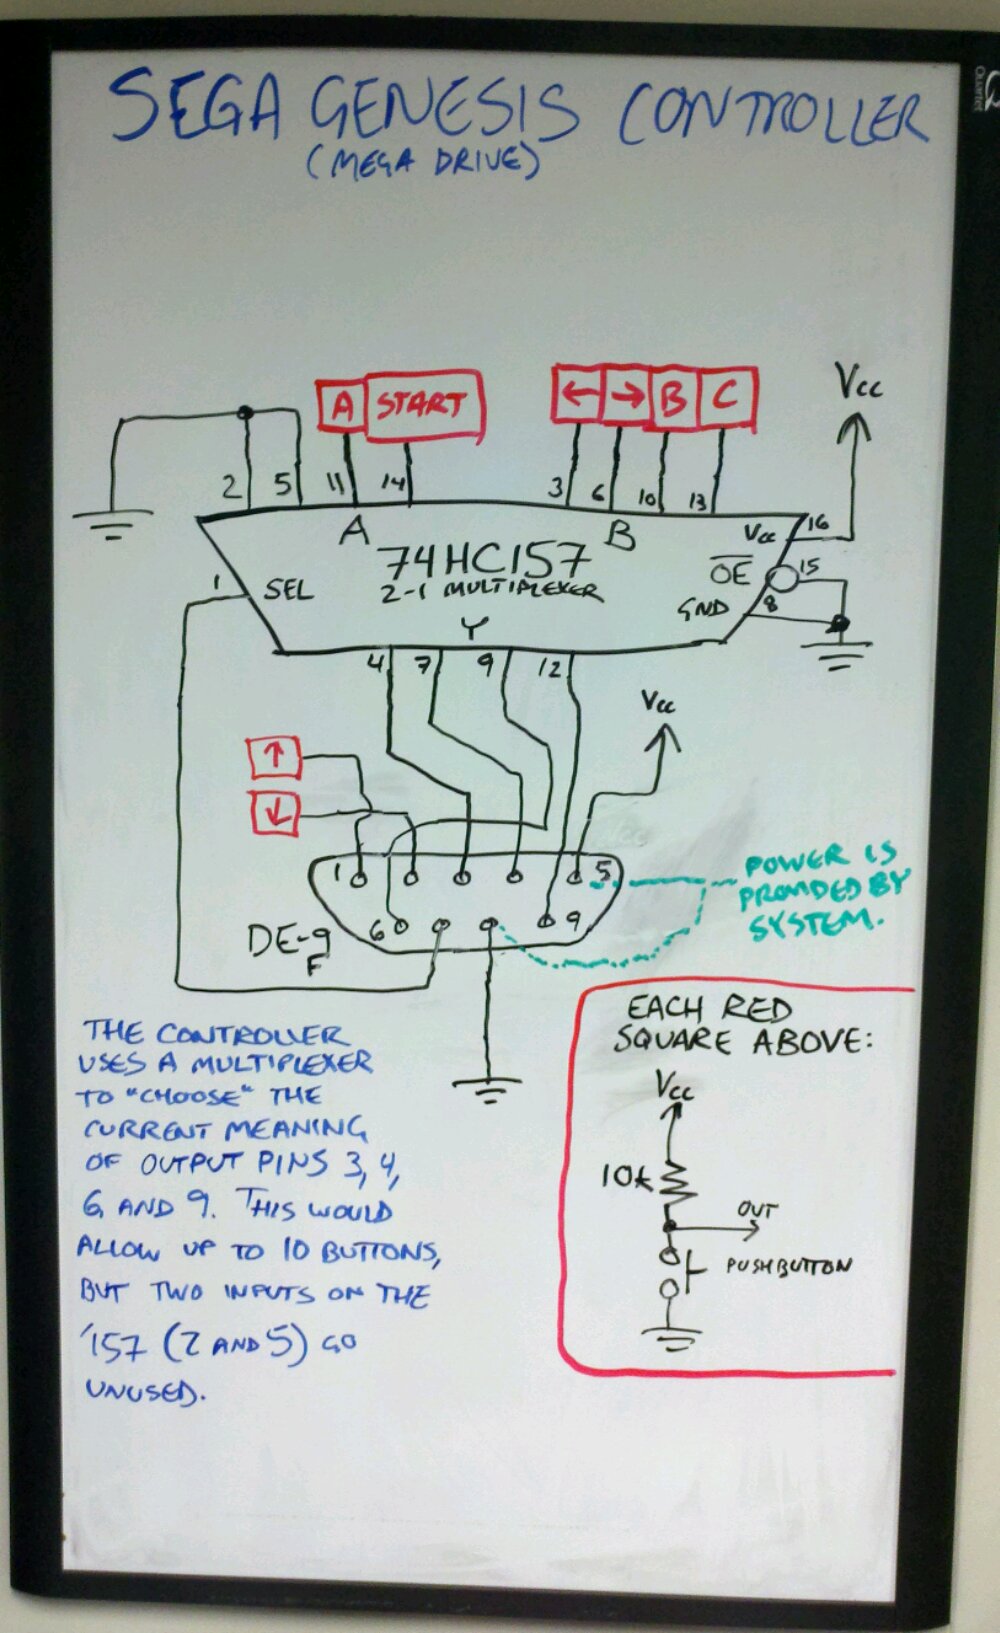 SEGA GENESIS CONTROLLER
(MEGA DRIVE)
Quartet
A START
← → B C
Vcc
2 5 11 14 3 6 10 13
A B
Vcc 16
74HC157
OE 15
1 SEL
2-1 MULTIPLEXER
GND 8
Y
4 7 9 12
Vcc
↑
↓
1 5
6 9
DE-9
F
POWER IS
PROVIDED BY
SYSTEM.
THE CONTROLLER
USES A MULTIPLEXER
TO "CHOOSE" THE
CURRENT MEANING
OF OUTPUT PINS 3, 4,
6 AND 9. THIS WOULD
ALLOW UP TO 10 BUTTONS,
BUT TWO INPUTS ON THE
'157 (2 AND 5) GO
UNUSED.
EACH RED
SQUARE ABOVE:
Vcc
10k
OUT
PUSHBUTTON